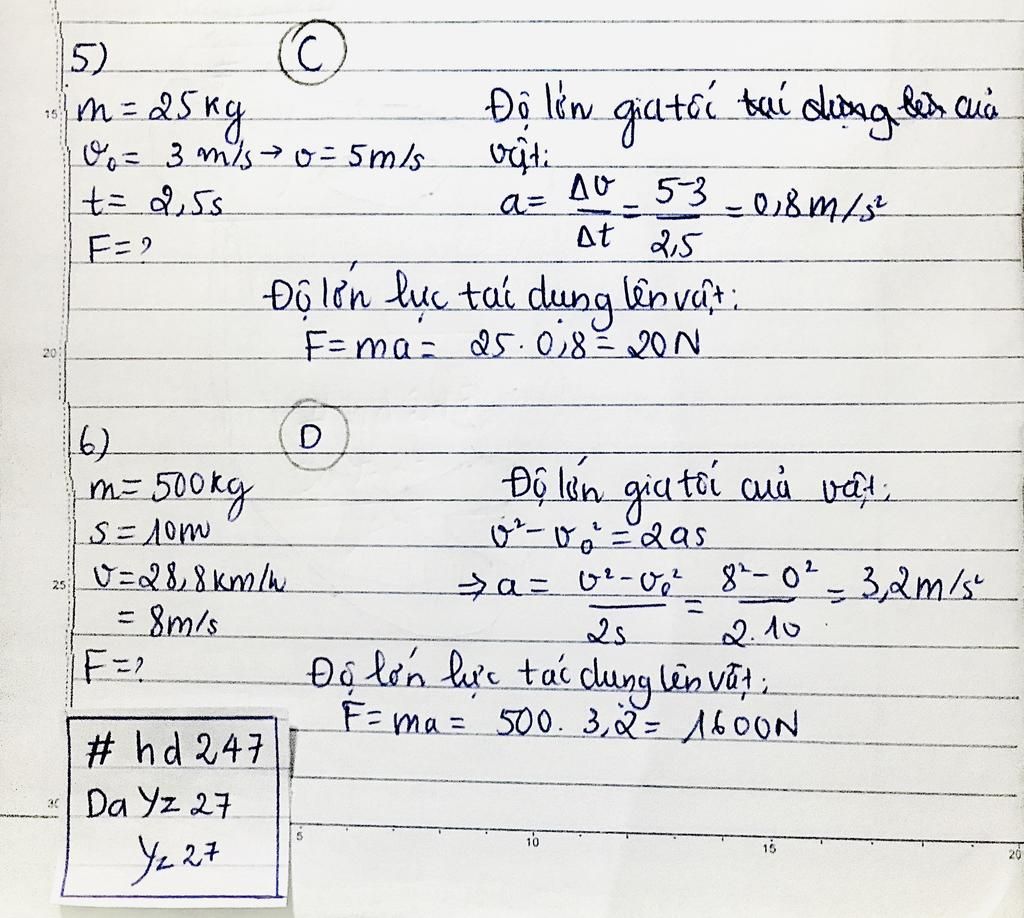 5) C
m = 25kg
v₀ = 3 m/s → v = 5m/s
t = 2,5s
F = ?
Độ lớn gia tốc của
vật:
a = Δv/Δt = 5-3/2,5 = 0,8m/s²
Độ lớn lực tác dụng lên vật:
F = ma = 25 . 0,8 = 20N
6) D
m = 500kg
s = 10m
v = 28,8km/h
= 8m/s
F = ?
Độ lớn gia tốc của vật:
v² - v₀² = 2as
⇒ a = v² - v₀²/2s = 8² - 0²/2.10 = 3,2m/s²
Độ lớn lực tác dụng lên vật:
F = ma = 500 . 3,2 = 1600N
# hd 247
Da Yz 27
Yz 27
15
20
25
30
5 10 15 20